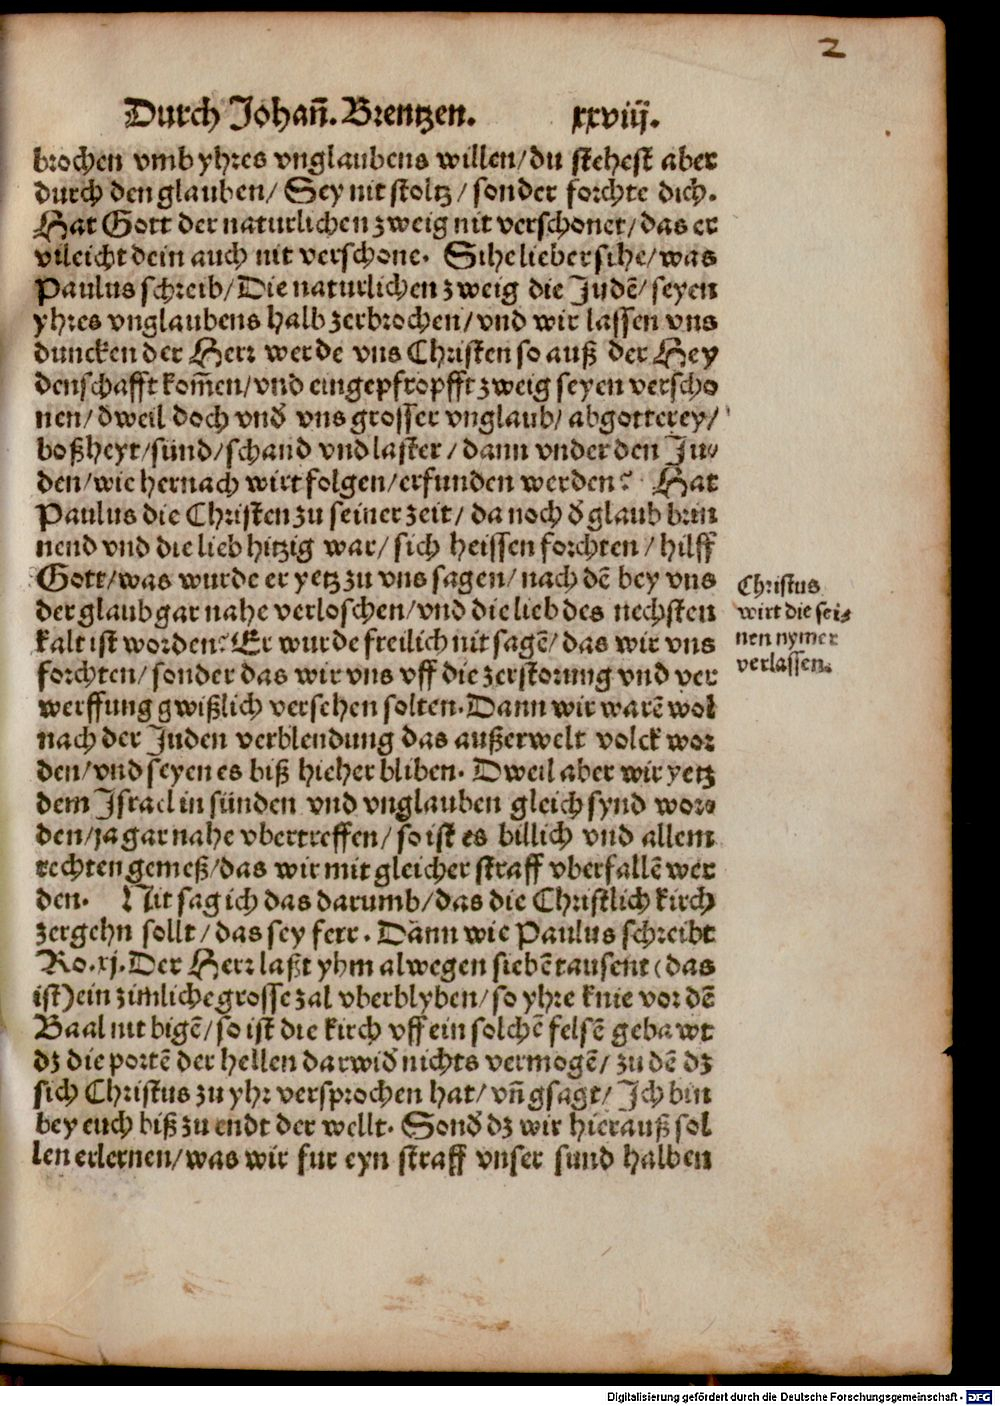 2
Durch Johañ. Brentzen. xxviiij.
brochen vmb yhres vnglaubens willen/du stehest aber
durch den glauben/ Sey nit stoltz/ sonder forchte dich.
Hat Gott der naturlichen zweig nit verschonet/das er
vileicht dein auch nit verschone. Sihe lieber sihe/was
Paulus schreib/Die naturlichen zweig die Judẽ/seyen
yhres vnglaubens halb zerbrochen/vnd wir lassen vns
duncken der Herr werde vns Christen so auß der Hey
denschafft kom̃en/vnd eingepfropfft zweig seyen verscho
nen/dweil doch vnd̛ vns grosser vnglaub/abgotterey/
boßheyt/sünd/schand vnd laster/dann vnder den Ju⸗
den/wie hernach wirt folgen/erfunden werden? Hat
Paulus die Christen zu seiner zeit/da noch d̛ glaub brin
nend vnd die lieb hitzig war/sich heissen forchten/hilff
Gott/was wurde er yetz zu vns sagen/nach dẽ bey vns
der glaub gar nahe verloschen/vnd die lieb des nechsten
kalt ist worden? Er wurde freilich nit sagẽ/das wir vns
forchten/sonder das wir vns vff die zerstorung vnd ver
werffung gwißlich versehen solten. Dann wir warẽ wol
nach der Juden verblendung das außerwelt volck wor
den/vnd seyen es biß hieher bliben. Dweil aber wir yetz
dem Israel in sünden vnd vnglauben gleich synd wor⸗
den/ja gar nahe vbertreffen/so ist es billich vnd allem
rechten gemeß/das wir mit gleicher straff vberfallẽ wer
den. Nit sag ich das darumb/das die Christlich kirch
zergehn sollt/das sey ferr. Dann wie Paulus schreibt
Ro.xj. Der Herr laßt yhm alwegen siebẽ tausent (das
ist) ein zimliche grosse zal vberblyben/so yhre knie vor dẽ
Baal nit bigẽ/so ist die kirch vff ein solchẽ felsẽ gebawt
dz die portẽ der hellen darwid̛ nichts vermogẽ/zu dẽ dz
sich Christus zu yhr versprochen hat/vñ gsagt/Ich bin
bey euch biß zu endt der wellt. Sond̛ dz wir hierauß sol
len erlernen/was wir fur eyn straff vnser sund halben
Christus
wirt die sei⸗
nen nymer
verlassen.
Digitalisierung gefördert durch die Deutsche Forschungsgemeinschaft - DFG